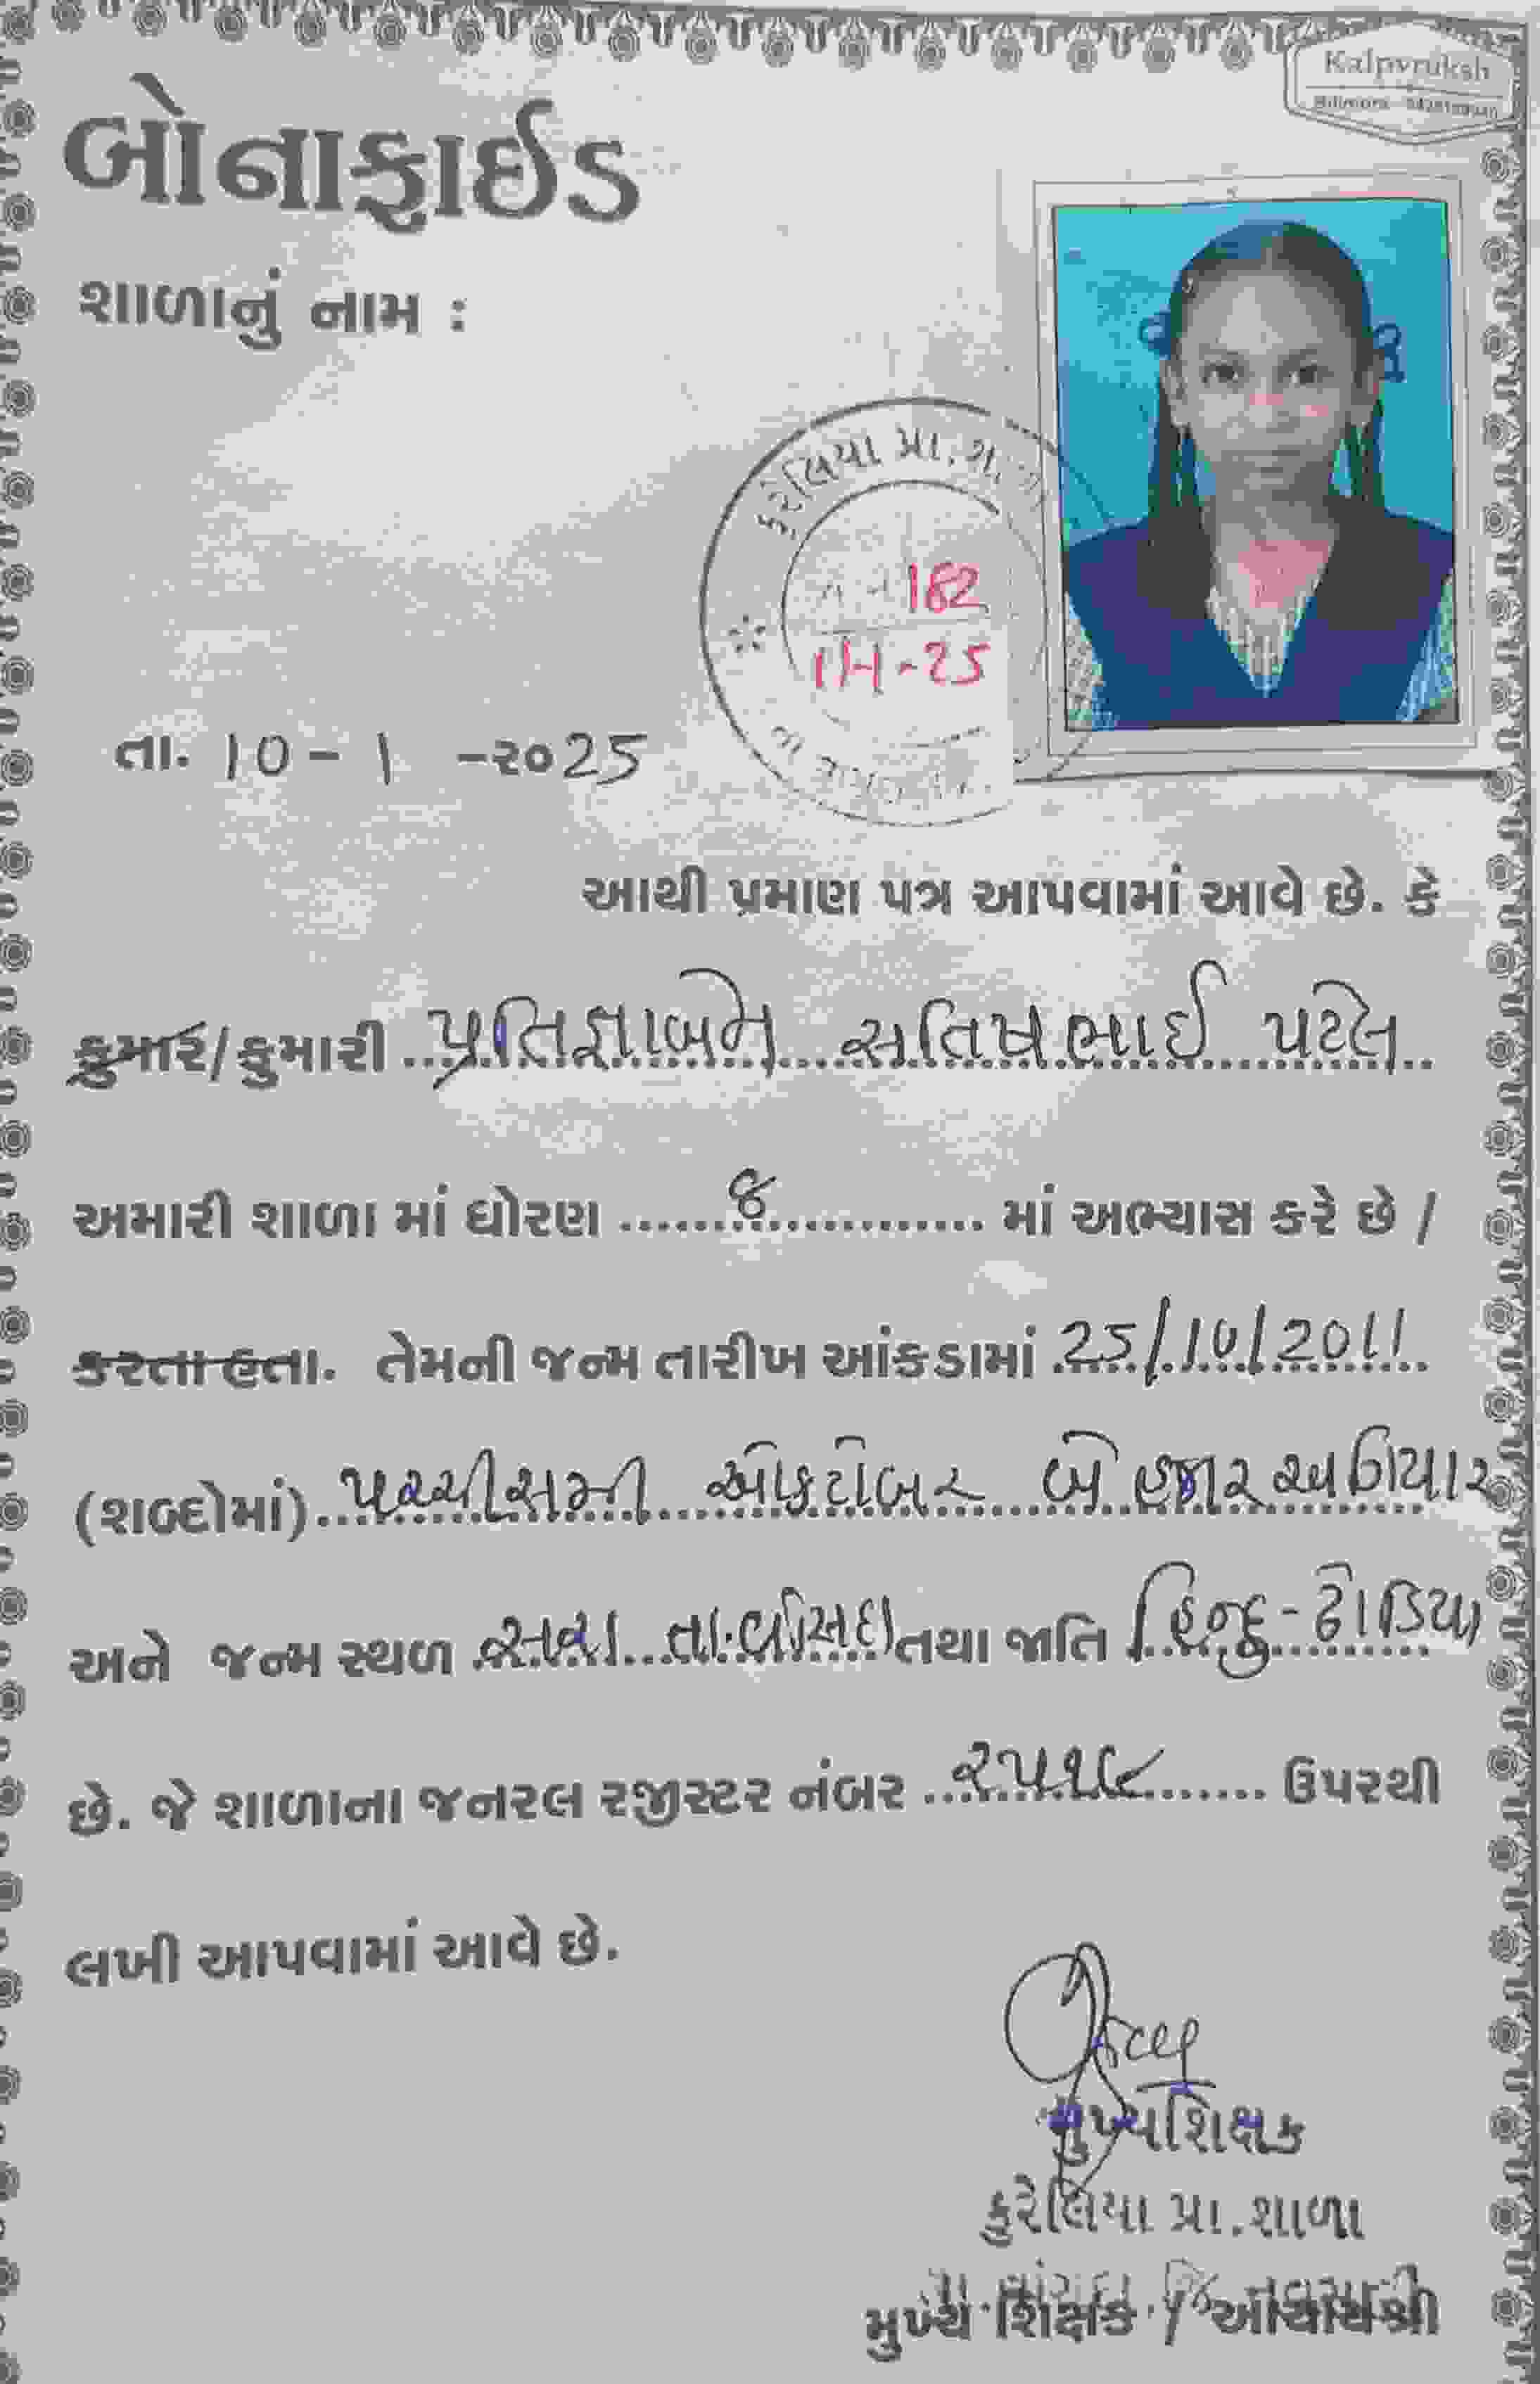 Kalpvruksh
બોનાફાઈડ
શાળાનું નામ :
કુરેલિયા પ્રા. શા.
182
1-1-25
તા. 10 - 1 -૨૦25
આથી પ્રમાણ પત્ર આપવામાં આવે છે. કે
કુમાર/કુમારી પ્રતિજ્ઞાબેન સતિષભાઈ પટેલ
અમારી શાળા માં ધોરણ 8 માં અભ્યાસ કરે છે /
કરતા હતા. તેમની જન્મ તારીખ આંકડામાં 25/10/2011
(શબ્દોમાં) પચ્ચીસમી ઓક્ટોબર બે હજાર અગિયાર
અને જન્મ સ્થળ તા.વાંસદા તથા જાતિ હિન્દુ-ઢોડિયા
છે. જે શાળાના જનરલ રજીસ્ટર નંબર ઉપરથી
લખી આપવામાં આવે છે.
મુખ્યશિક્ષક
કુરેલિયા પ્રા.શાળા
તા.વાંસદા.જિ.નવસારી
મુખ્ય શિક્ષક / આચાર્યશ્રી